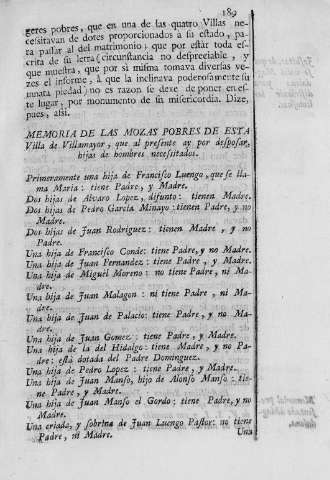 189
geres pobres, que en una de las quatro Villas ne-
cessitavan de dotes proporcionados a su estado, pa-
ra passar al del matrimonio; que por estàr toda es-
crita de su letra (circunstancia no despreciable, y
que muestra, que por sì misma tomava diversas ve-
zes el informe, à que la inclinava poderosamente su
innata piedad) no es razon se dexe de poner en es-
te lugar, por monumento de su misericordia. Dize,
pues, assi.
MEMORIA DE LAS MOZAS POBRES DE ESTA
Villa de Villamayor, que al presente ay por desposar,
hijas de hombres necessitados.
Primeramente una hija de Francisco Luengo, que se lla-
ma Maria: tiene Padre, y Madre.
Dos hijas de Alvaro Lopez, difunto: tienen Madre.
Dos hijas de Pedro Garcia Minayo: tienen Padre, y no
Madre.
Dos hijas de Juan Rodriguez: tienen Madre, y no
Padre.
Una hija de Francisco Conde: tiene Padre, y no Madre.
Una hija de Juan Fernandez: tiene Padre, y Madre.
Una hija de Miguèl Moreno: no tiene Padre, ni Ma-
dre.
Una hija de Juan Malagon: ni tiene Padre, ni Ma-
dre.
Una hija de Juan de Palacio: tiene Padre, y no Ma-
dre.
Una hija de Juan Gomez: tiene Padre, y Madre.
Una hija de la del Hidalgo: tiene Madre, y no Pa-
dre: està dotada del Padre Dominguez.
Una hija de Pedro Lopez: tiene Padre, y Madre.
Una hija de Juan Manso, hijo de Alonso Manso: tie-
ne Padre, y Madre.
Una hija de Juan Manso el Gordo: tiene Padre, y no
Madre.
Una criada, y sobrina de Juan Luengo Pastor: no tiene
Padre, ni Madre.
Una